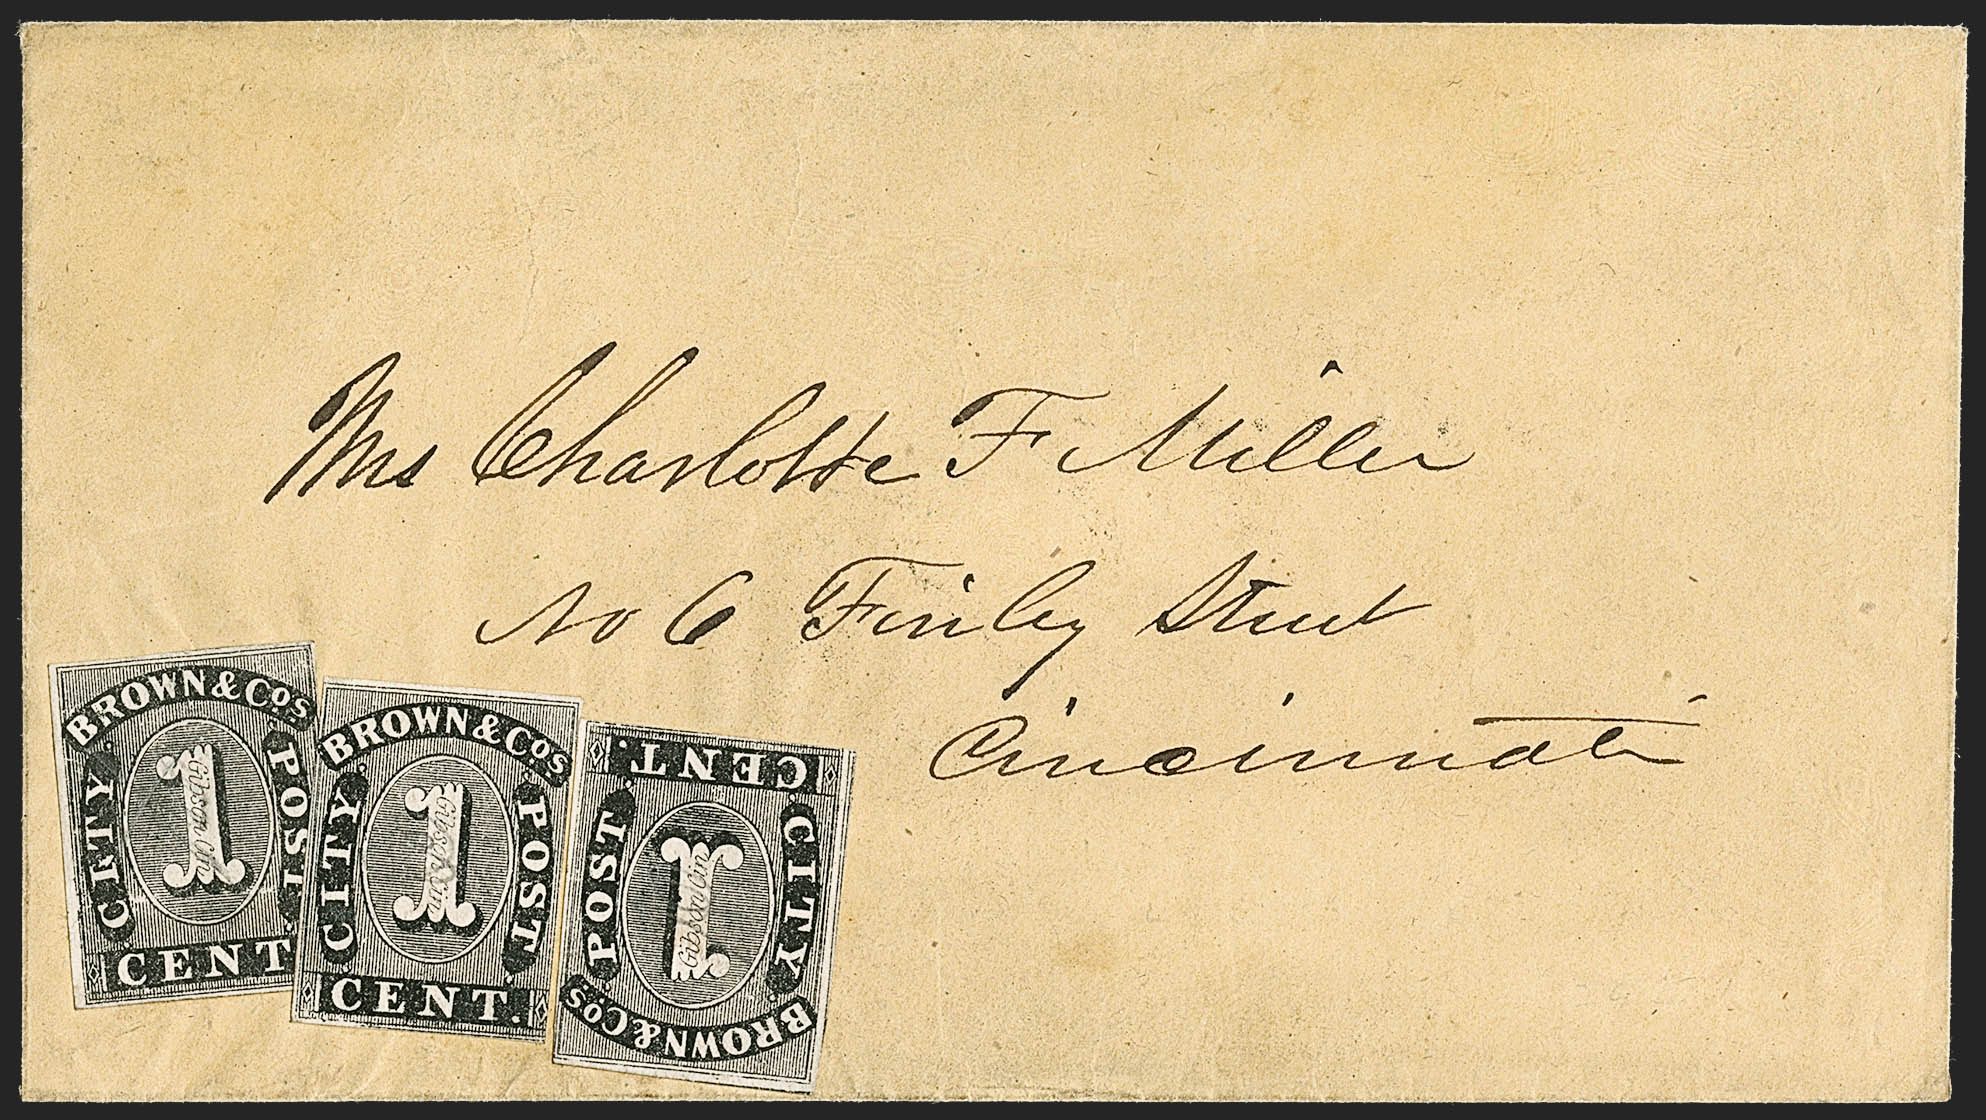 Mrs Charlotte F Miller
No 6 Finley Street
Cincinnati
BROWN & COS
CITY
POST
1
Gibson, Cin
CENT
BROWN & COS
CITY
POST
1
Gibson Cin
CENT.
BROWN & COS
CITY
POST
1
Gibson Cin
CENT.